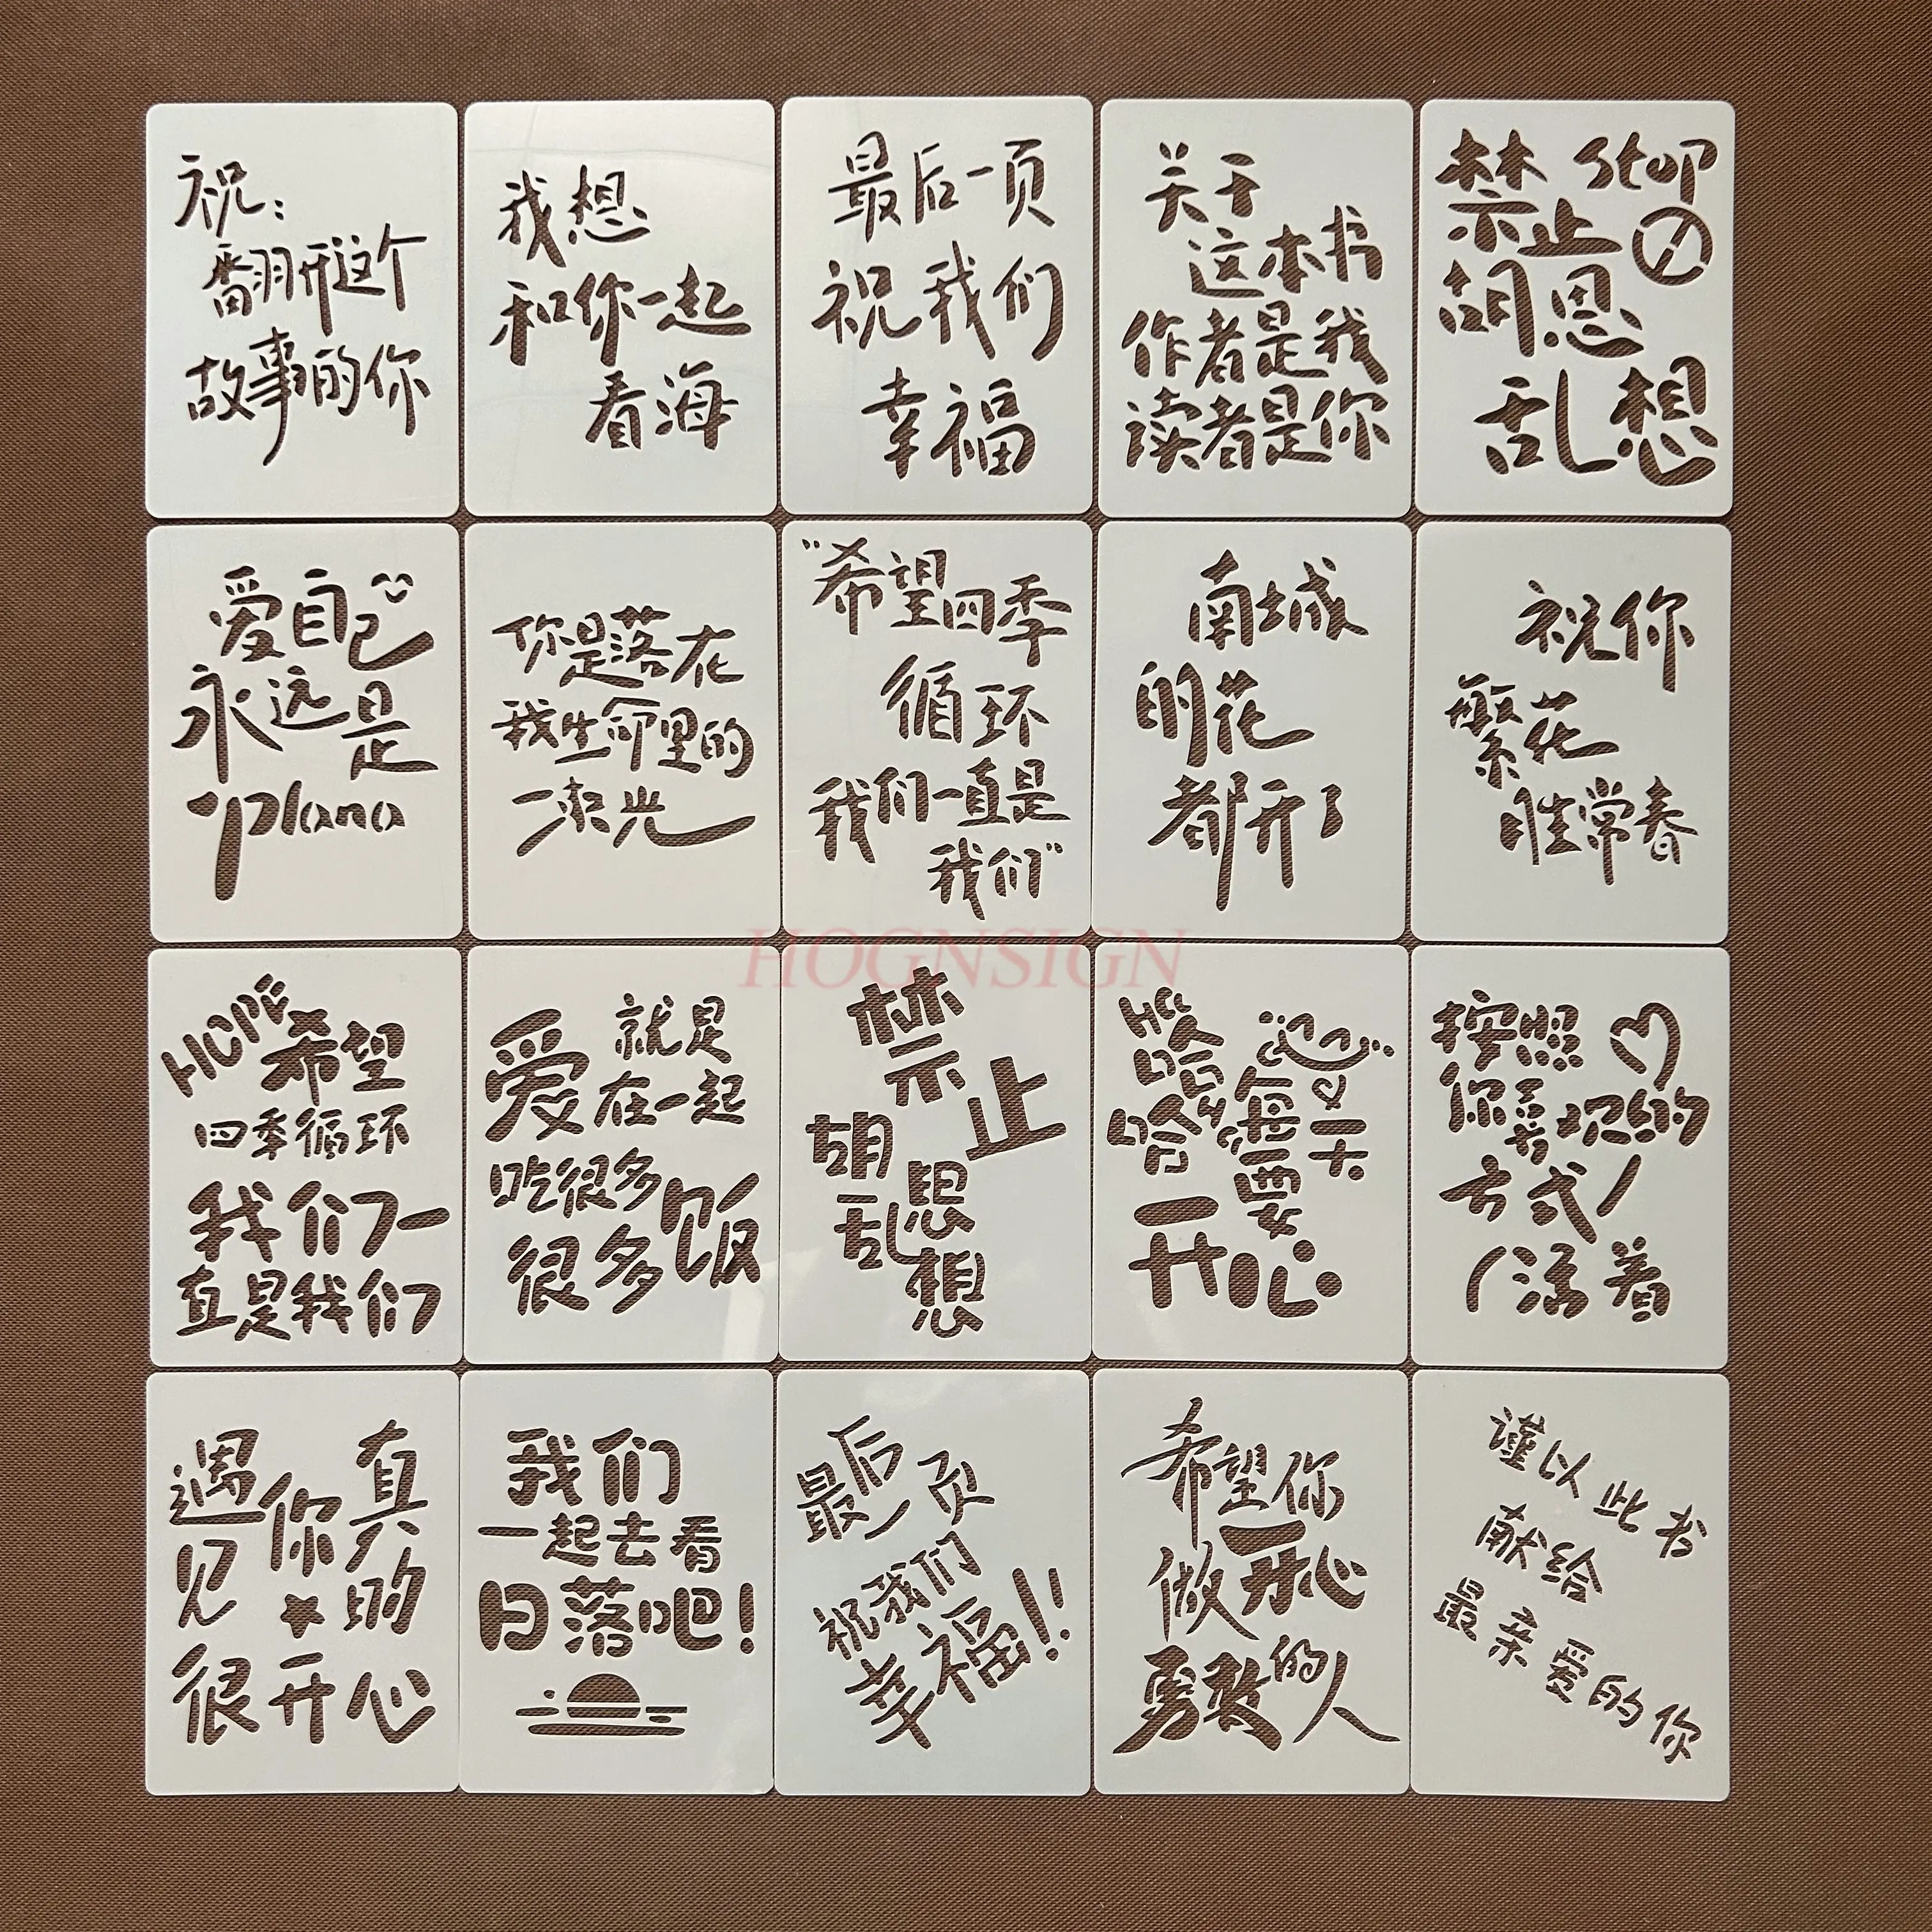 祝:
翻开这个
故事的你
我想
和你一起
看海
最后一页
祝我们
幸福
关于
这本书
作者是我
读者是你
禁止 stop
胡思
乱想
爱自己
永远是
plana
你是落在
我生命里的
一束光
“希望四季
循环
我们一直是
我们”
南城
的花
都开了
祝你
繁花
胜常春
HOPE
希望
四季循环
我们一
直是我们
爱就是
在一起
吃很多
很多饭
禁止
胡思
乱想
哈哈
每天
要
开心
按照
你喜欢的
方式
活着
遇见你真的
很开心
我们
一起去看
日落吧!
最后一页
祝我们
幸福!!
希望你
做一开心
勇敢的人
谨以此书
献给
最亲爱的你
HOGNSIGN